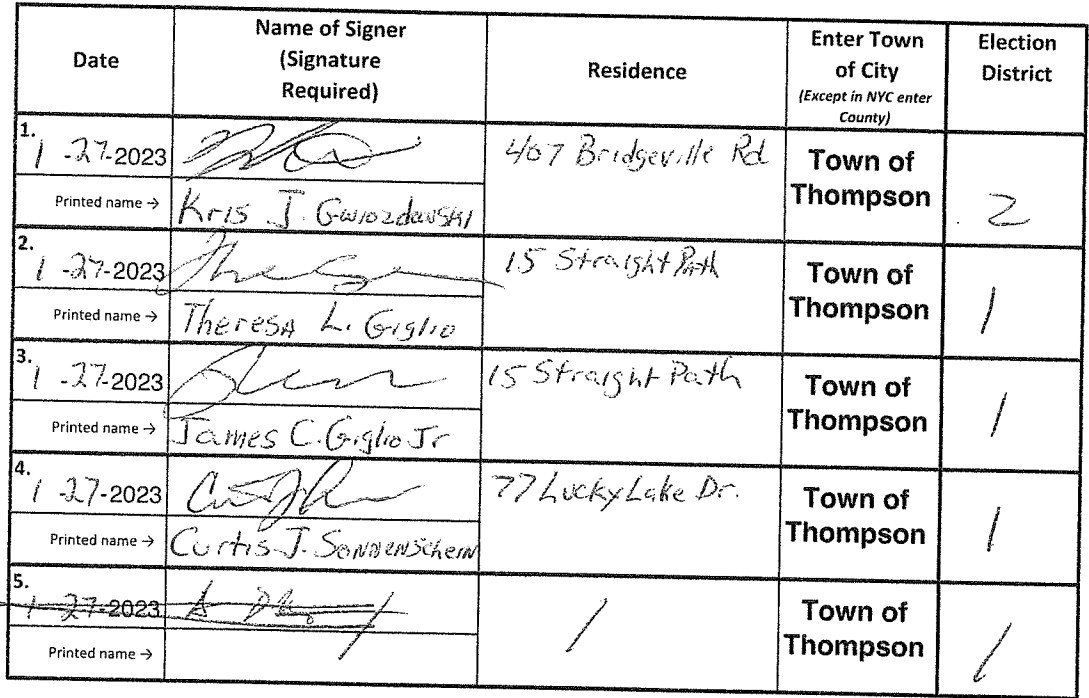 Date
Name of Signer
(Signature
Required)
Residence
Enter Town
of City
(Except in NYC enter
County)
Election
District
1.
1-27-2023
407 Bridgeville Rd
Town of
Thompson
2
Printed name → Kris J. Gwiozdowski
2.
1-27-2023
15 Straight Path
Town of
Thompson
1
Printed name → Theresa L. Giglio
3.
1-27-2023
15 Straight Path
Town of
Thompson
1
Printed name → James C. Giglio Jr
4.
1-27-2023
77 Lucky Lake Dr.
Town of
Thompson
1
Printed name → Curtis J. Sonnenschein
5.
1-27-2023
/
Town of
Thompson
/
Printed name →